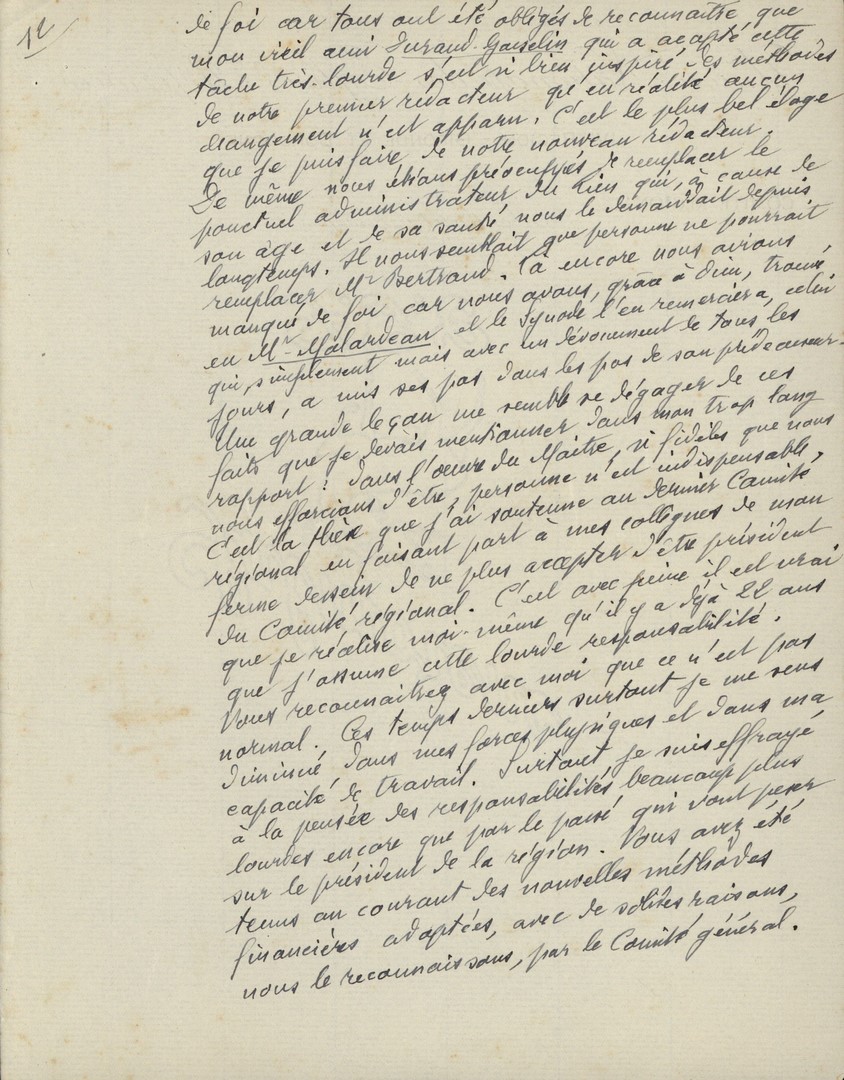 12
de foi car tous ont été obligés de reconnaître que
mon vieil ami Durand-Gasselin qui a accepté cette
tâche très-lourde s'est si bien inspiré des méthodes
de notre premier rédacteur qu'en réalité aucun
changement n'est apparu. C'est le plus bel éloge
que je puis faire de notre nouveau rédacteur.
De même nous étions préoccupés de remplacer le
ponctuel administrateur du Lien qui, à cause de
son âge et de sa santé nous le demandait depuis
longtemps. Il nous semblait que personne ne pourrait
remplacer Mr Bertrand. Là encore nous avions
manqué de foi car nous avons, grâce à Dieu, trouvé,
en Mr Malardeau et le Synode l'en remerciera, celui
qui, simplement mais avec un dévouement de tous les
jours, a mis ses pas dans les pas de son prédécesseur.
Une grande leçon me semble se dégager de ces
faits que je devais mentionner dans mon trop long
rapport : dans l'œuvre du Maître, si fidèles que nous
nous efforcions d'être, personne n'est indispensable.
C'est la thèse que j'ai soutenue au dernier Comité
régional en faisant part à mes collègues de mon
ferme dessein de ne plus accepter d'être président
du Comité régional. C'est avec peine il est vrai
que je réalise moi-même qu'il y a déjà 22 ans
que j'assume cette lourde responsabilité.
Vous reconnaîtrez avec moi que ce n'est pas
normal. Ces temps derniers surtout je me sens
diminué dans mes forces physiques et dans ma
capacité de travail. Surtout je suis effrayé
à la pensée des responsabilités beaucoup plus
lourdes encore que par le passé qui vont peser
sur le président de la région. Vous avez été
tenus au courant des nouvelles méthodes
financières adoptées, avec de solides raisons,
nous le reconnaissons, par le Comité général.